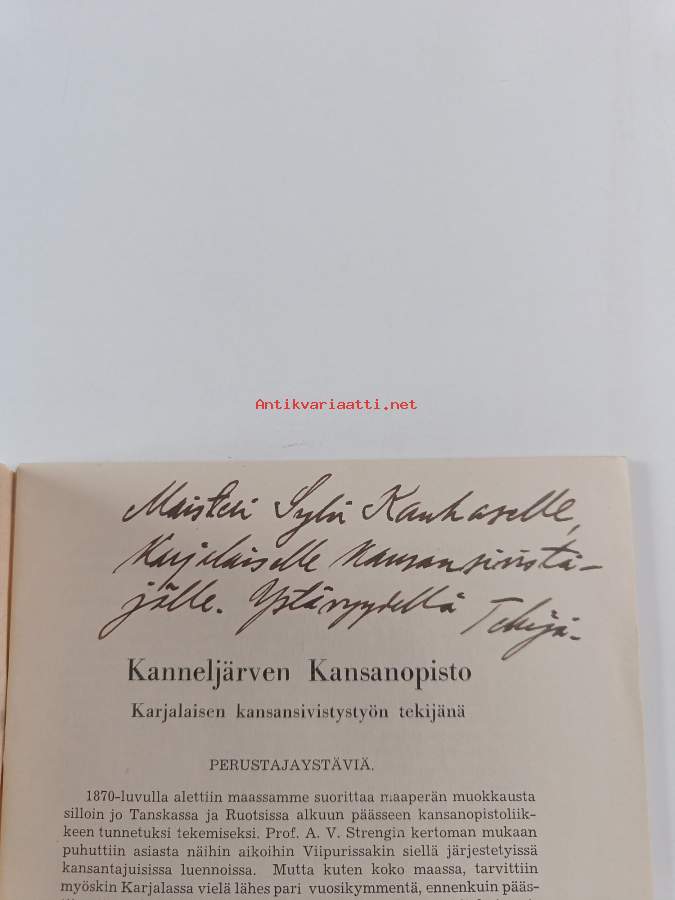 Antikvariaatti.net
Maisteri Sylvi Kauhaselle,
Karjalaiselle Kansansivistä-
jälle. Ystävyydellä Tekijä.
Kanneljärven Kansanopisto
Karjalaisen kansansivistystyön tekijänä
PERUSTAJAYSTÄVIÄ.
1870-luvulla alettiin maassamme suorittaa maaperän muokkausta
silloin jo Tanskassa ja Ruotsissa alkuun päässeen kansanopistoliik-
keen tunnetuksi tekemiseksi. Prof. A. V. Strengin kertoman mukaan
puhuttiin asiasta näihin aikoihin Viipurissakin siellä järjestetyissä
kansantajuisissa luennoissa. Mutta kuten koko maassa, tarvittiin
myöskin Karjalassa vielä lähes pari vuosikymmentä, ennenkuin pääs-